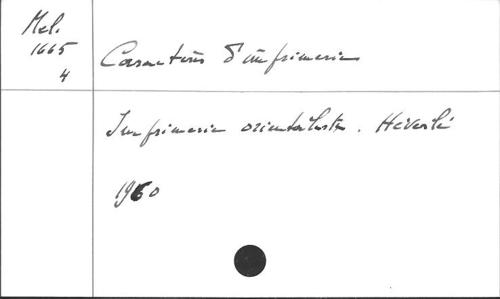 Mel.
1665
4
Caractères d'imprimerie
Imprimerie orientaliste. Héverlé
1960